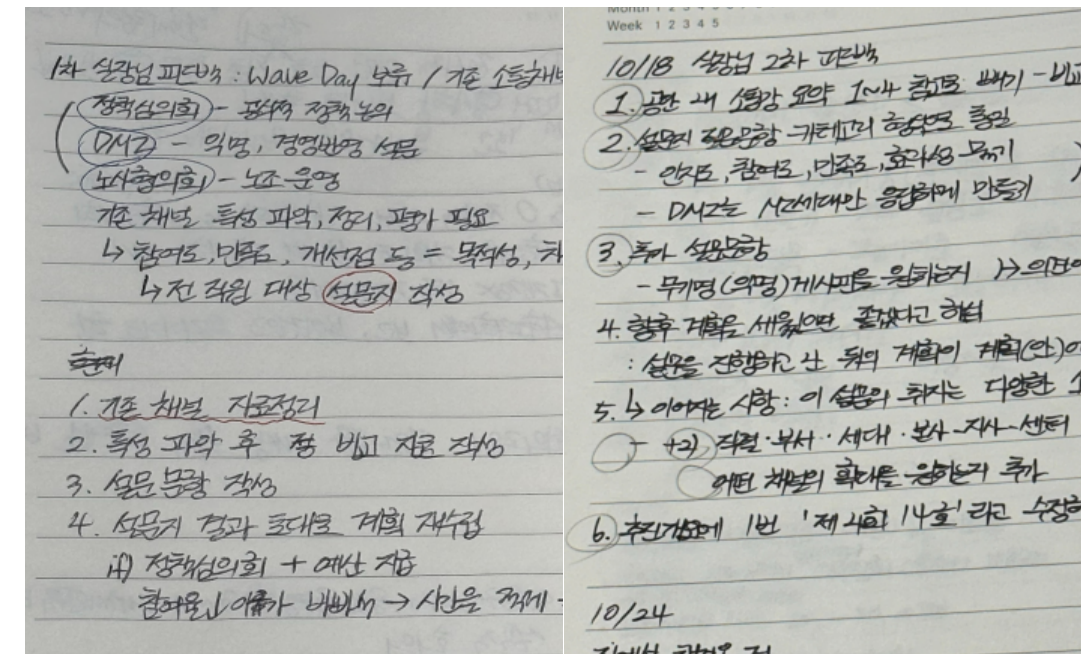 1차 실장님 피드백 : Wave Day 보류 / 기존 소통채널
정책심의회 - 공식적 정책 논의
DMZ - 익명, 경영반영 설문
노사협의회 - 노조 운영
기존 채널 특성 파악, 정리, 평가 필요
↳ 참여도, 만족도, 개선점 등 = 목적성, 차
↳ 전 직원 대상 설문지 작성
1. 기존 채널 자료정리
2. 특성 파악 후 비교 자료 작성
3. 설문 문항 작성
4. 설문지 결과 토대로 계획 재수립
if) 정책심의회 + 예산 지급
참여율↓ 이유가 바빠서 → 시간을 적게
Month 1 2 3 4 5
Week 1 2 3 4 5
10/18 실장님 2차 피드백
1. 공란 내 요약 1~4 참고로 빼기 - 비교
2. 설문지 질문문항 카테고리 형식으로 통일
- 인지도, 참여도, 만족도, 효과성 묶기
- DMZ는 MZ세대만 응답하게 만들기
3. 추가 설문문항
- 무기명(익명)게시판을 원하는지
4. 향후 계획을 세웠으면 좋겠다고 하심
: 설문을 진행하고 난 뒤의 계획이 계획(안)이
5. ↳ 이어지는 사항 : 이 설문의 취지는 다양한
+2) 직렬·부서·세대·본사-지사-센터
어떤 채널의 확대를 원하는지 추가
6. 추진개요에 1번 '제 4회 14호' 라고 수정
10/24